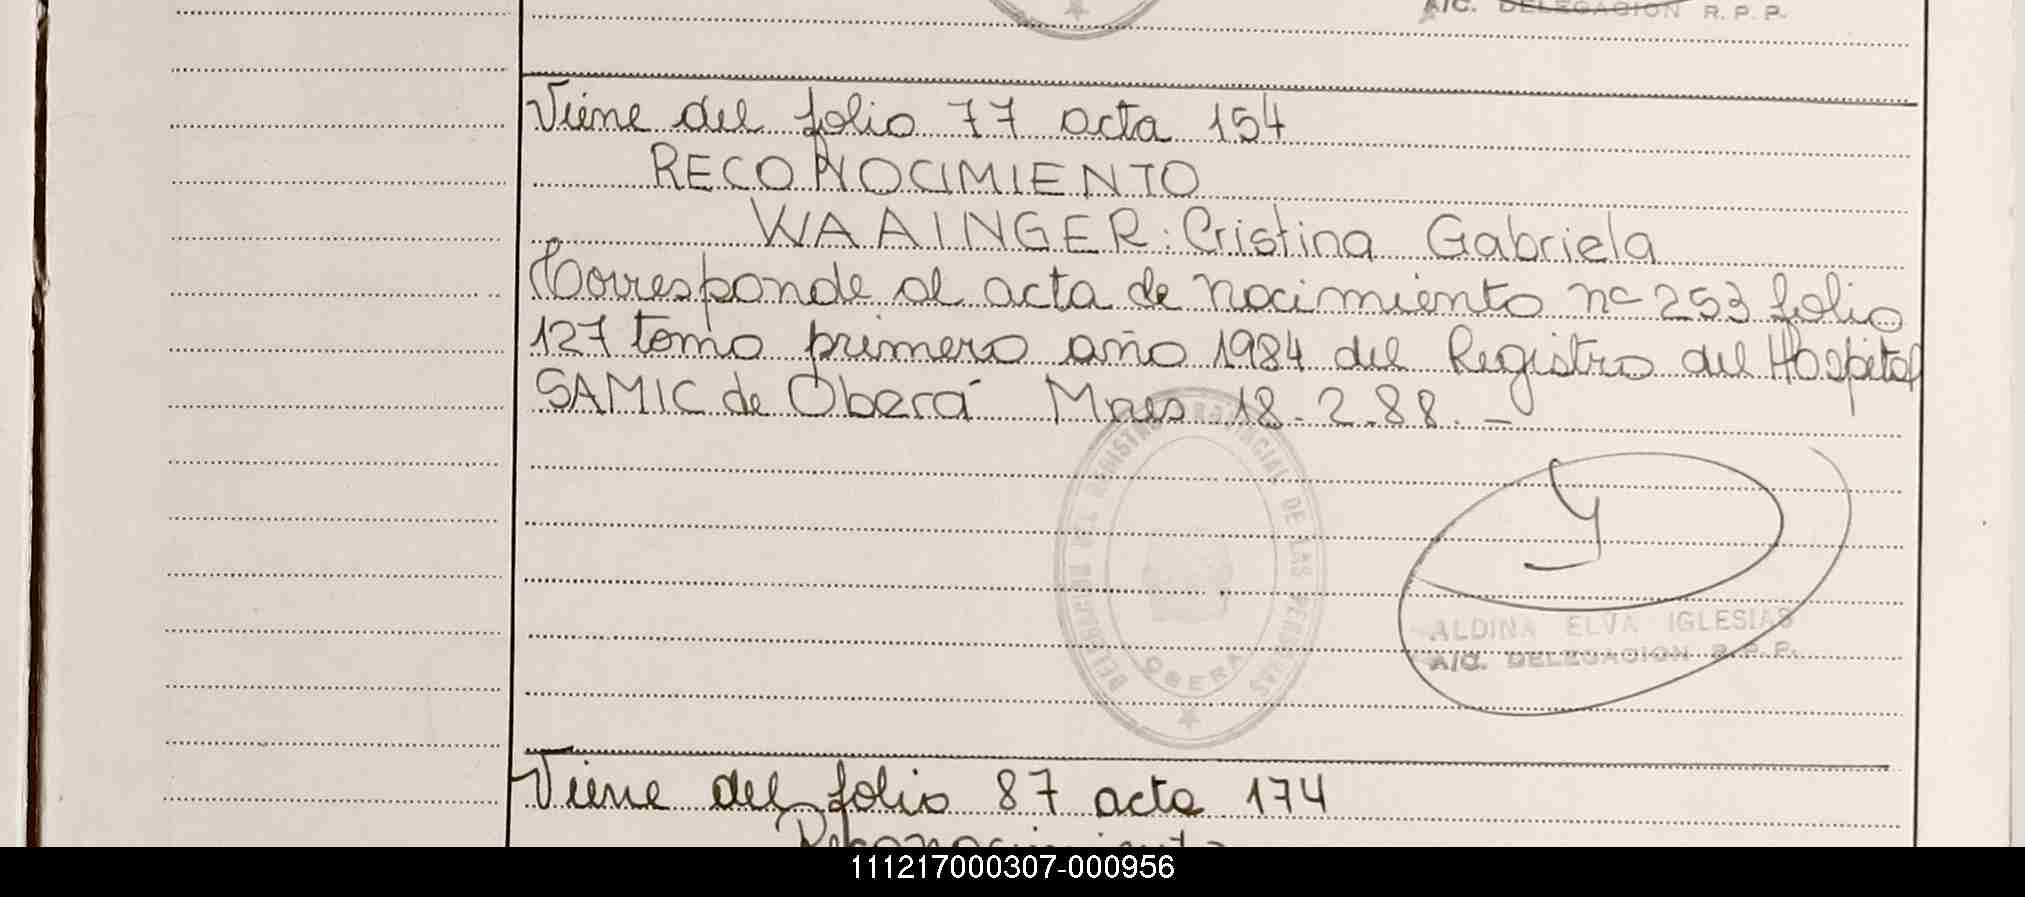 A/C. DELEGACION R. P. P.
Viene del folio 77 acta 154
RECONOCIMIENTO
WAAINGER: Cristina Gabriela
Corresponde al acta de nacimiento nº 253 folio
127 tomo primero año 1984 del Registro del Hospital
SAMIC de Oberá Mnes 18-2.88.-
DELEGACION DEL REGISTRO PROVINCIAL DE LAS PERSONAS
OBERA
ALDINA ELVA IGLESIAS
A/C. DELEGACION R. P. P.
Viene del folio 87 acta 174
Reconocimiento
111217000307-000956